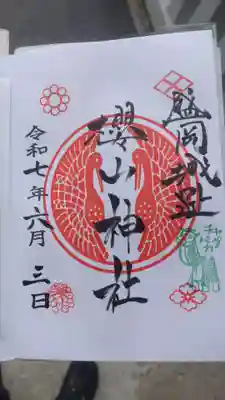 盛岡城址
櫻山神社
令和七年六月三日